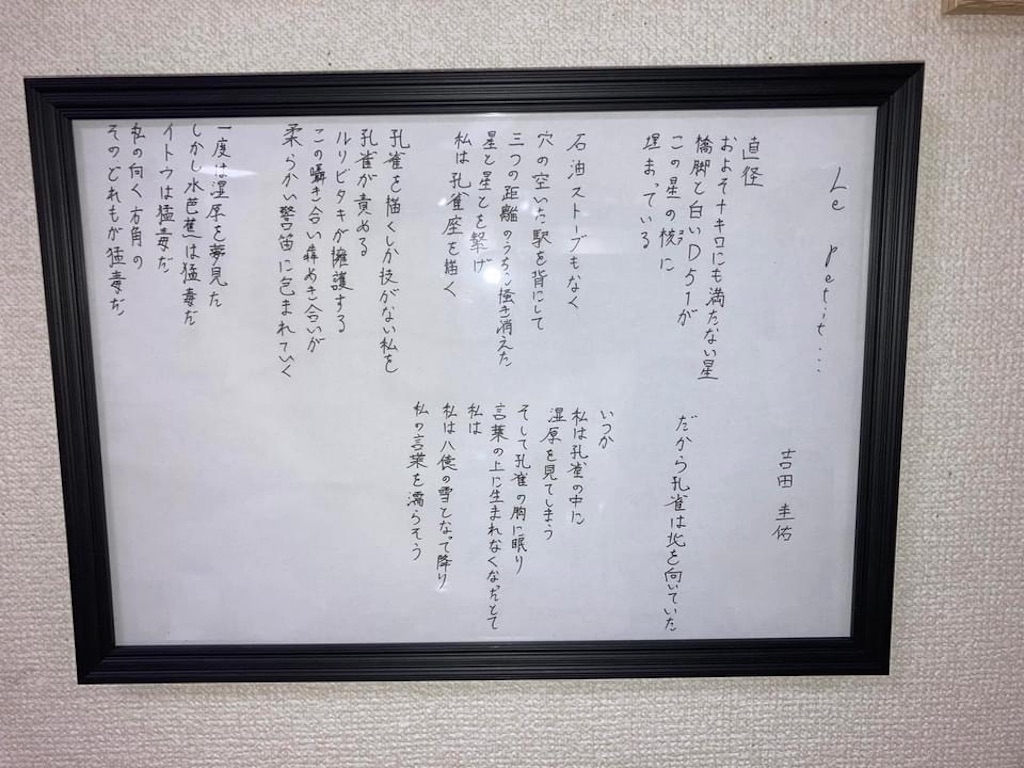 Le petit...
吉田 圭佑
直径
およそ十キロにも満たない星
橋脚と白いD51が
この星の核に
コア
埋まっている
石油ストーブもなく
穴の空いた駅を背にして
三つの距離のうちに掻き消えた
星と星とを繋げ
私は孔雀座を描く
孔雀を描くしか技がない私を
孔雀が責める
ルリビタキが擁護する
この囁き合い犇めき合いが
柔らかい警笛に包まれていく
一度は湿原を夢見た
しかし水芭蕉は猛毒だ
イトウは猛毒だ
私の向く方角の
そのどれもが猛毒だ
だから孔雀は北を向いていた
いつか
私は孔雀の中に
湿原を見てしまう
そして孔雀の胸に眠り
言葉の上に生まれなくなったとて
私は
私は八億の雪となって降り
私の言葉を濡らそう